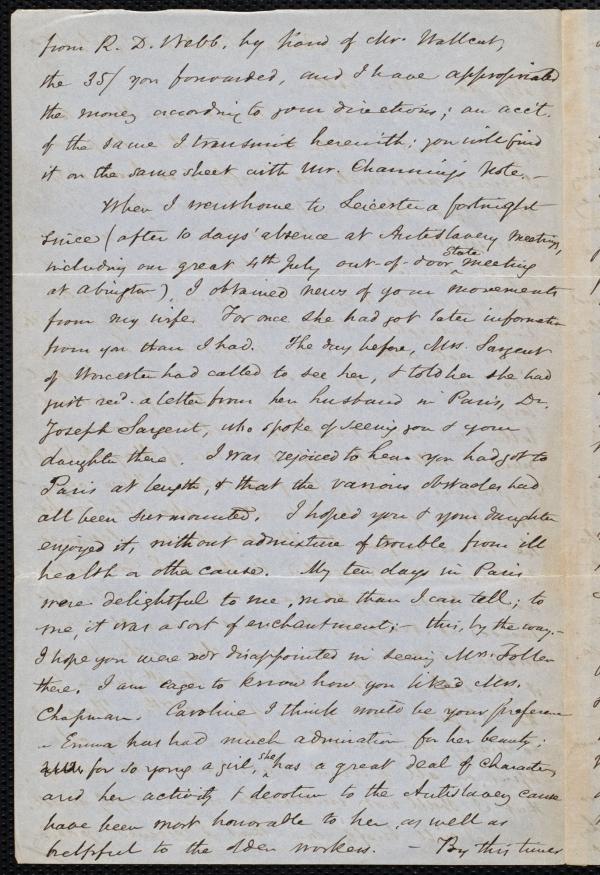 from R. D. Webb, by hand of Mr. Wallcut,
the 35/ you forwarded, and I have appropriated
the money according to your directions; an acct.
of the same I transmit herewith; you will find
it on the same sheet with Mr. Channing's Note. –
When I went home to Leicester a fortnight
since (after 10 days' absence at Antislavery meetings,
including our great 4th July out-of-door State meeting
at Abington), I obtained news of your movements
from my wife. For once she had got later information
from you than I had. The day before, Mrs. Sargent
of Worcester had called to see her, & told her she had
just recd. a letter from her husband in Paris, Dr.
Joseph Sargent, who spoke of seeing you & your
daughter there. I was rejoiced to hear you had got to
Paris at length, & that the various obstacles had
all been surmounted. I hoped you & your daughter
enjoyed it, without admixture of trouble from ill
health or other cause. My ten days in Paris
were delightful to me, more than I can tell; to
me, it was a sort of enchantment; – this, by the way. –
I hope you were not disappointed in seeing Mrs. Follen
there. I am eager to know how you liked Mrs.
Chapman. Caroline I think would be your preference
– Emma has had much admiration for her beauty;
for so young a girl, she has a great deal of character,
and her activity & devotion to the Antislavery cause
have been most honorable to her, as well as
helpful to the older workers. – By this time